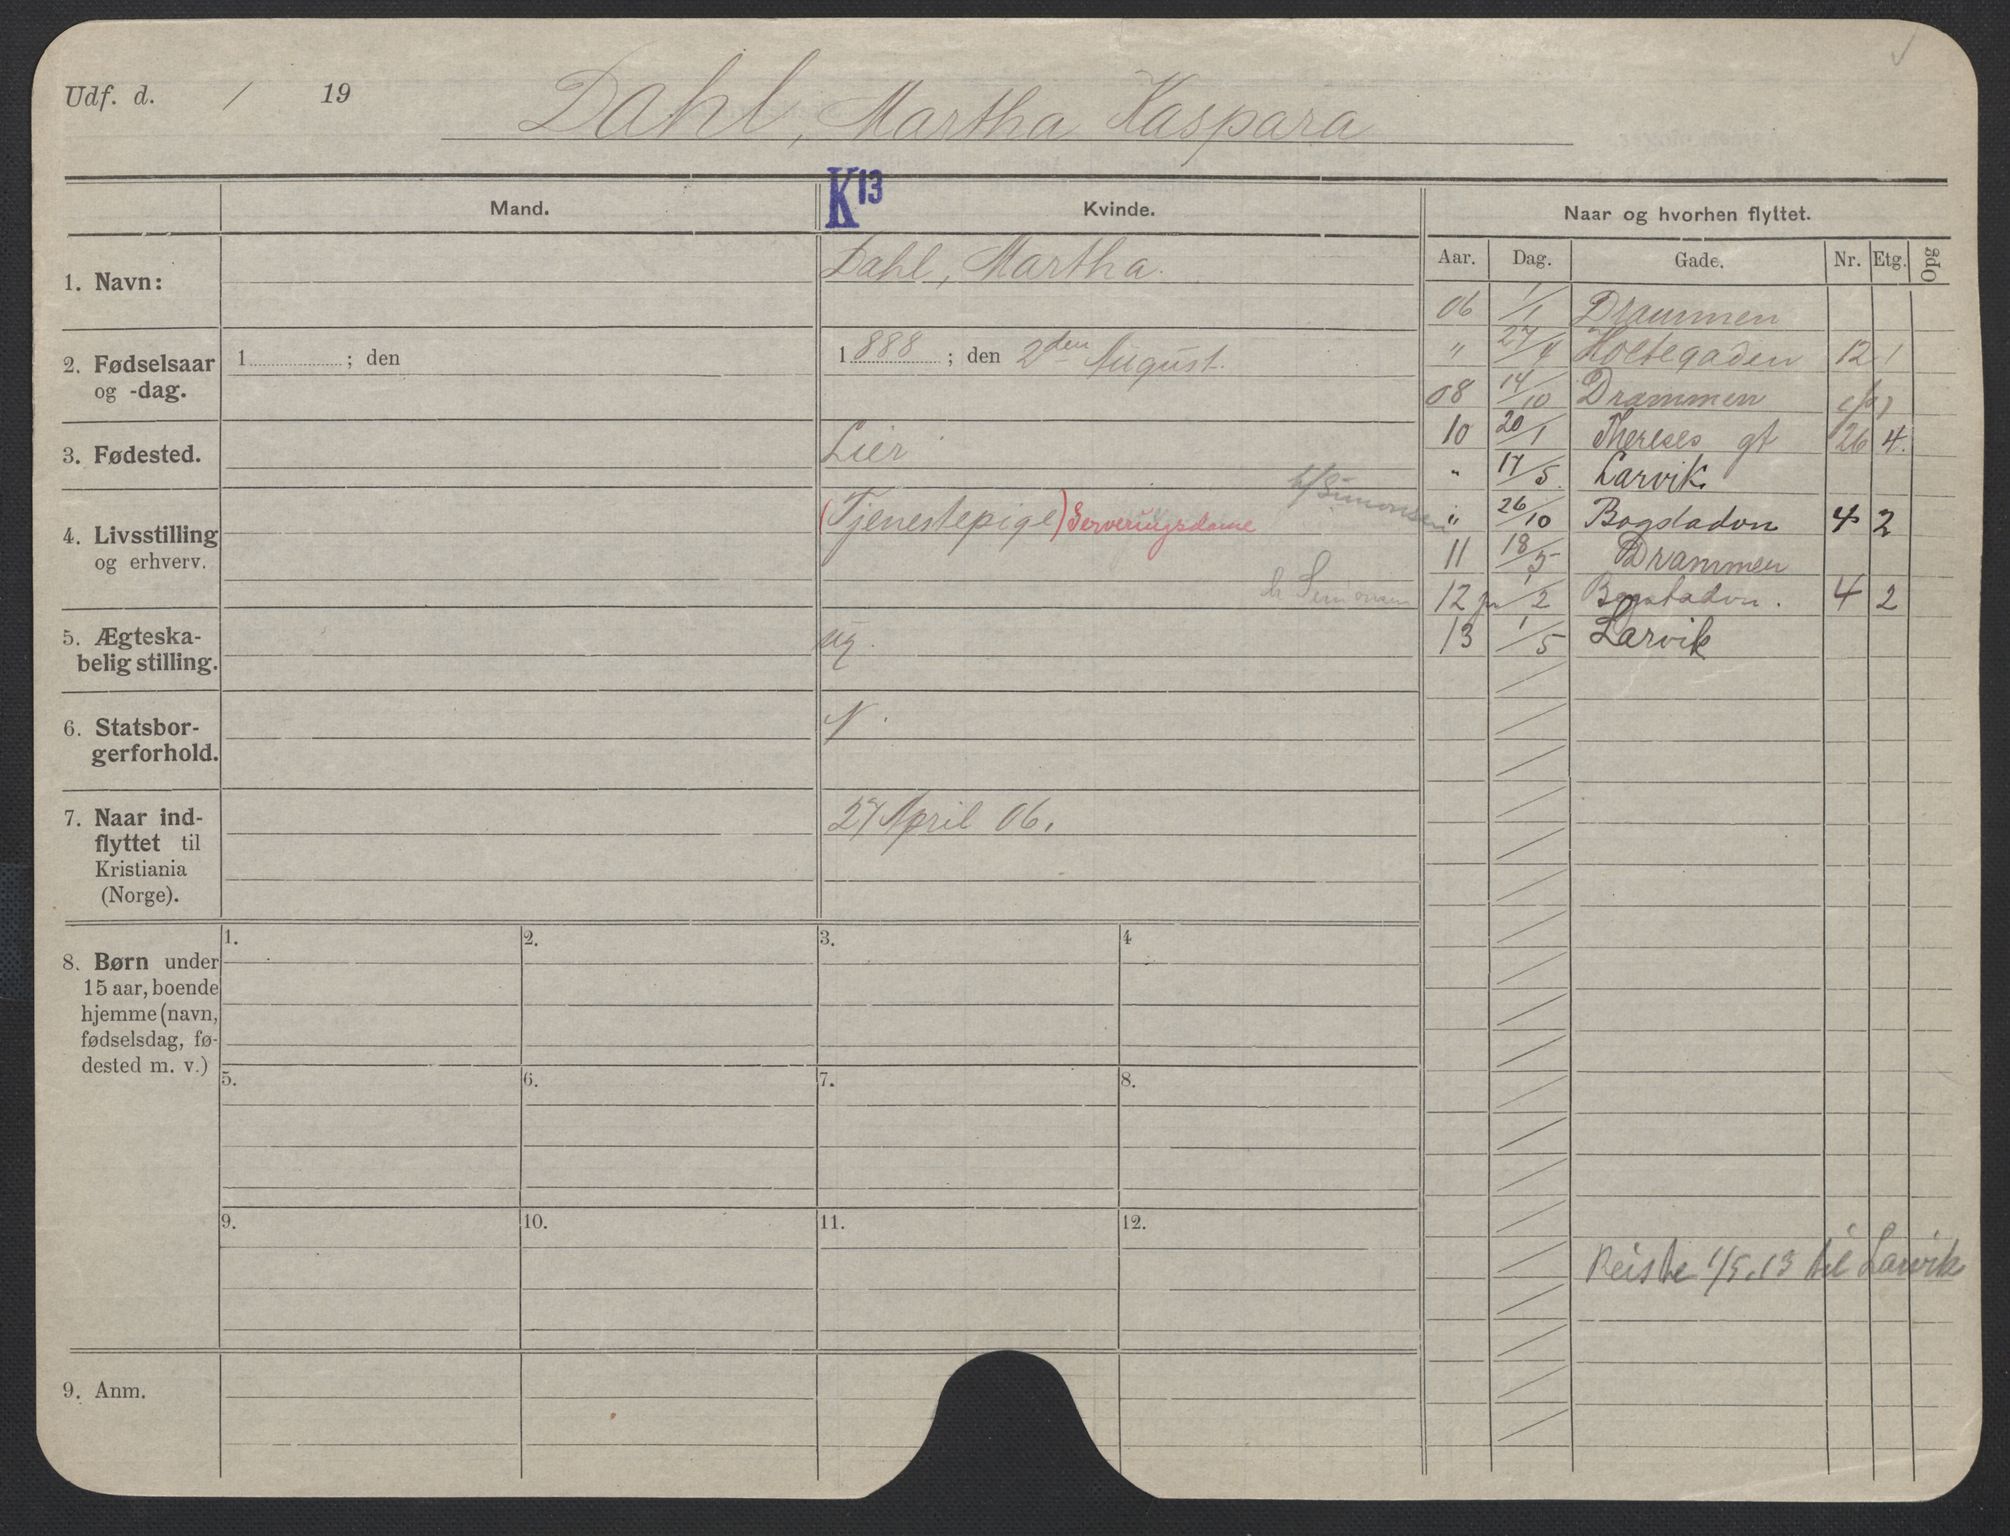 Udf. d. / 19
Dahl, Martha Kaspara
K13
Mand.
Kvinde.
Naar og hvorhen flyttet.
Aar. Dag. Gade. Nr. Etg. Opg
1. Navn:
Dahl, Martha.
2. Fødselsaar og -dag.
1 ; den
1888 ; den 2den August.
3. Fødested.
Lier
4. Livsstilling og erhverv.
(Tjenestepige) Serveringsdame
h/Simonsen
h Simonsen
5. Ægteska-
belig stilling.
ug.
6. Statsbor-
gerforhold.
N.
7. Naar ind-
flyttet til
Kristiania
(Norge).
27 April 06.
06 1/1 Drammen
" 27/4 Holtegaden 12 1
08 14/10 Drammen
10 20/1 Thereses gt 26 4.
" 17/5. Larvik.
" 26/10 Bogstadvn 4 2
11 18/5 Drammen
12 1/2 Bogstadvn. 4 2
13 1/5 Larvik
8. Børn under
15 aar, boende
hjemme (navn,
fødselsdag, fø-
dested m. v.)
1. 2. 3. 4
5. 6. 7. 8.
9. 10. 11. 12.
Reiste 1/5.13 til Larvik
9. Anm.